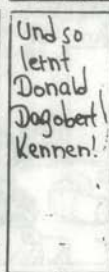 Und so
lernt
Donald
Dagobert
Kennen!